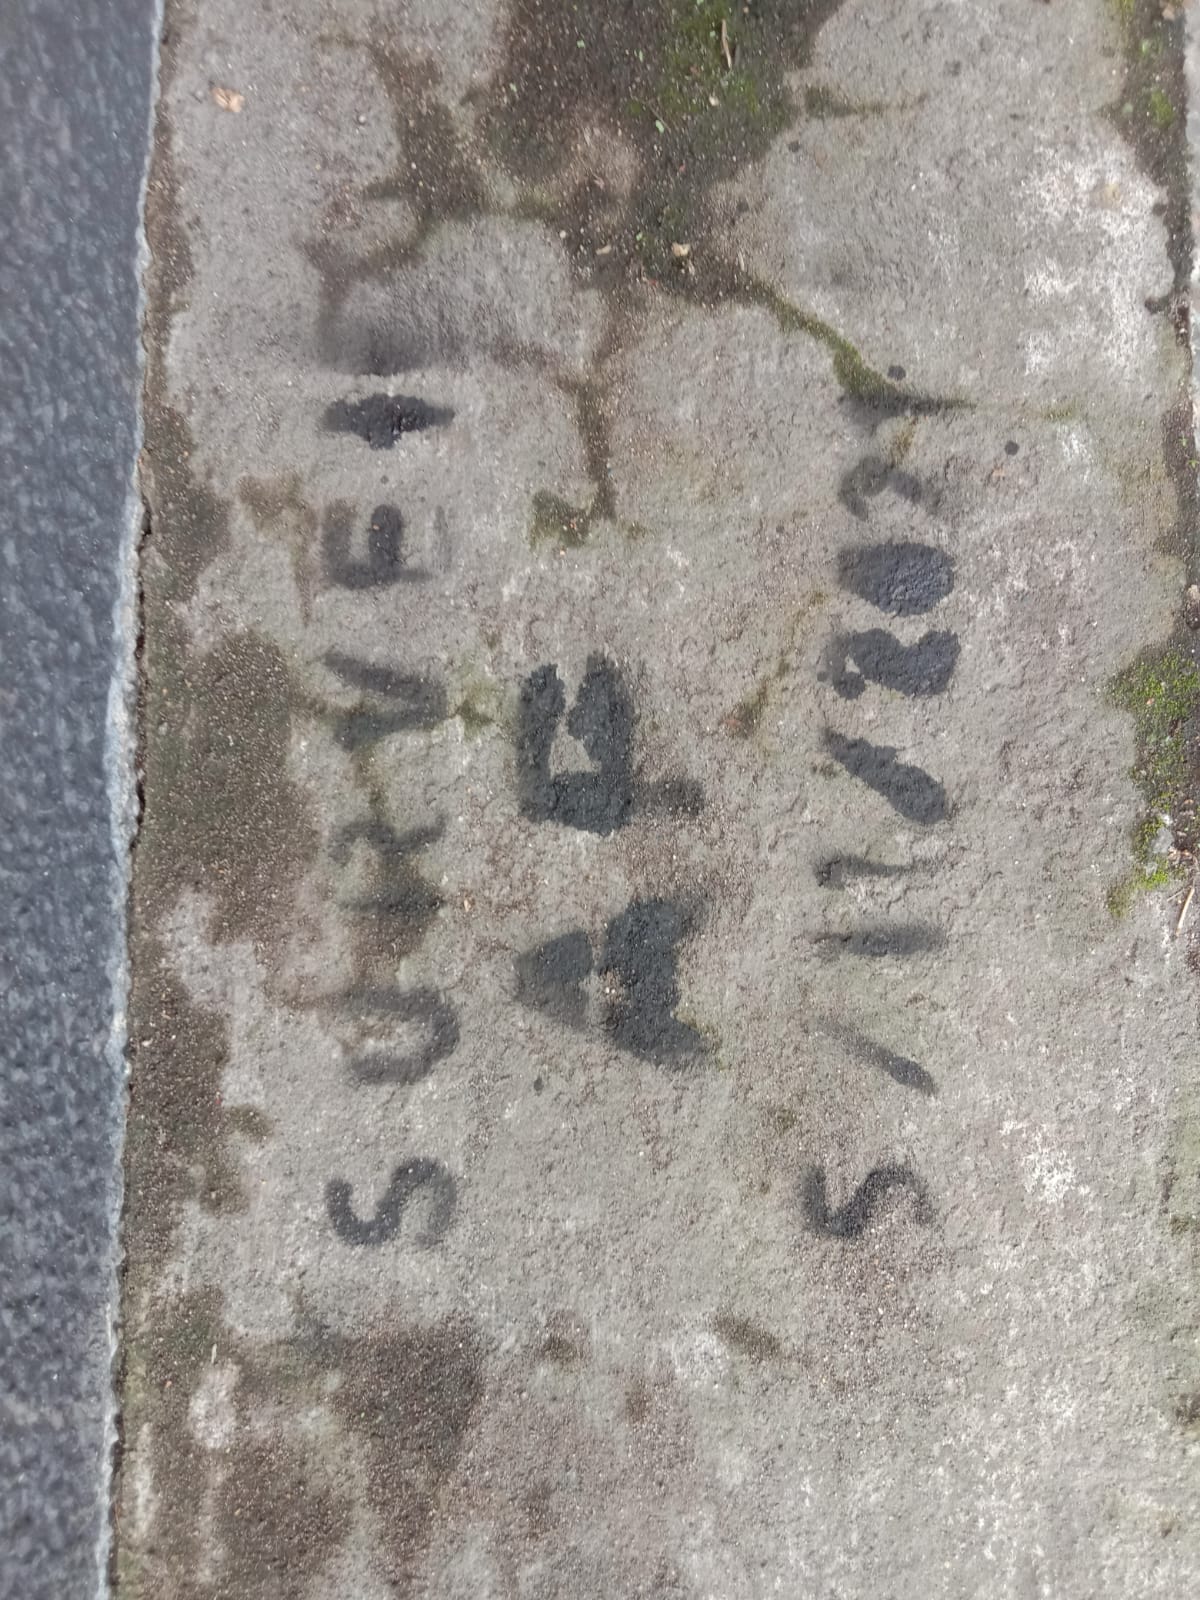 SURVEI
AP
5/11/2021